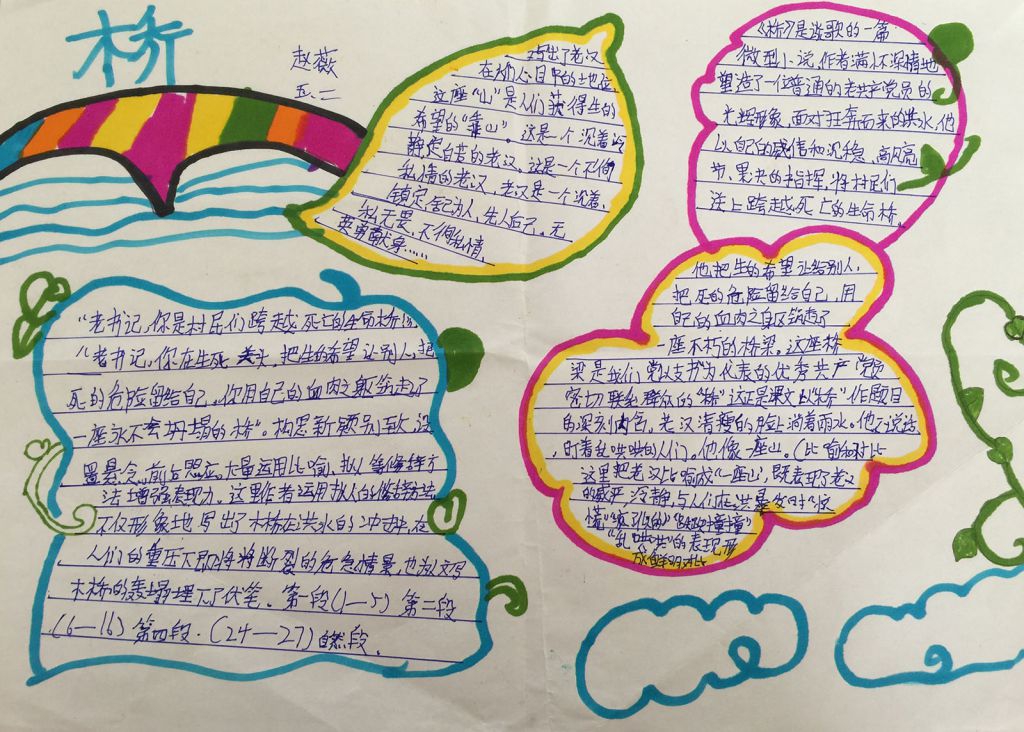 桥
赵薇
五.二
写出了老汉
在村人心目中的地位,
这座“山”是人们获得生的
希望的“靠山”。这是一个沉着冷
静定自若的老汉,这是一个不徇
私情的老汉,老汉是一个沉着、
镇定,舍己为人,先人后己,无
私无畏,不徇私情,
英勇献身……
《桥》是谈歌的一篇
微型小说,作者满怀深情地
塑造了一位普通的老共产党员的
光辉形象,面对狂奔而来的洪水,他
以自己的威信和沉稳、高风亮
节、果决的指挥,将村民们
送上跨越死亡的生命桥。
他把生的希望让给别人,
把死的危险留给自己,用
自己的血肉之躯筑造了
一座不朽的桥梁。这座桥
梁是我们党以支书为代表的优秀共产党员
密切联系群众的“桥”这正是课文以“桥”作题目
的深刻内含。老汉清瘦的脸上淌着雨水。他不说话
,盯着乱哄哄的人们。他像一座山。(比喻和对比
这里把老汉比喻成“一座山”,既表现了老汉
的威严、冷静,与人们在洪暴发时“惊
慌”“疯狂的”“跌跌撞撞”
“乱哄哄”的表现形
成鲜明对比
“老书记,你是村民们跨越死亡的生命桥”
“老书记,你在生死关头,把生的希望让别人,把
死的危险留给自己。你用自己的血肉之躯筑起了
一座永不会坍塌的桥”。构思新颖别致,设
置悬念,前后照应。大量运用比喻、拟人等修辞方
法增强表现力。这里作者运用拟人的修辞手法,
不仅形象地写出了木桥在洪水的冲击,在
人们的重压下即将将断裂的危急情景,也为文写
木桥的轰塌埋下了伏笔。第一段(1—5) 第二段
(6—16) 第四段.(24—27)自然段。